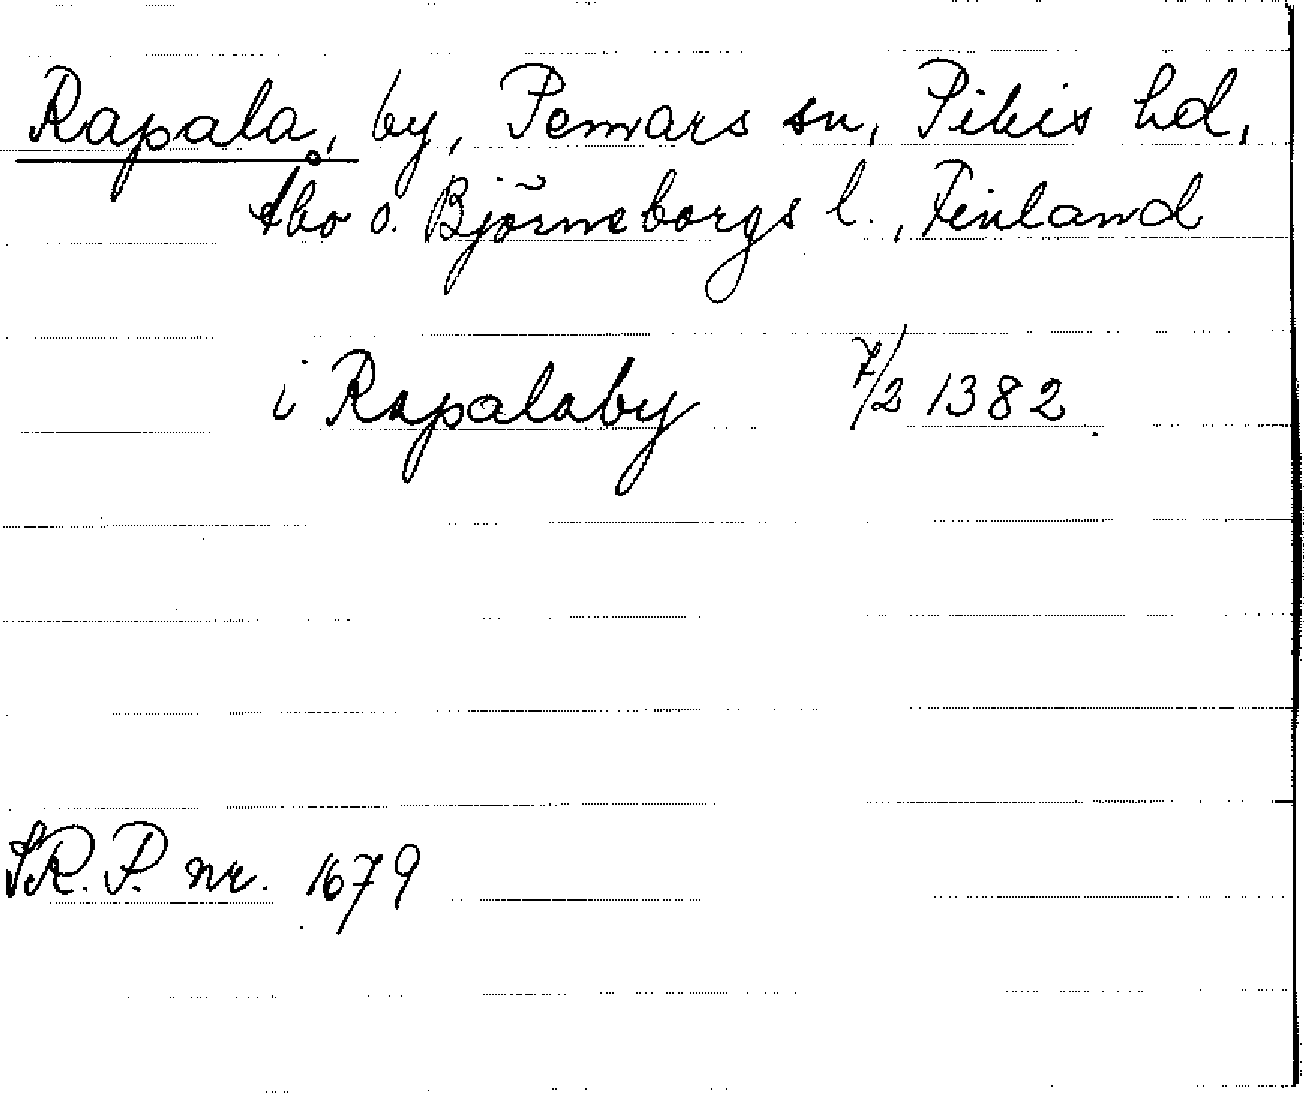 Rapala, by, Pemars sn, Pikis hd,
Åbo o. Björneborgs l., Finland
i Rapalaby 7/2 1382
SR.P. nr. 1679